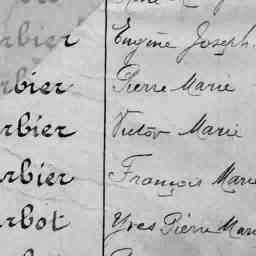 rbier Eugène Joseph
rbier Pierre Marie
rbier Victor Marie
rbier François Marie
rbot Yves Pierre Mari